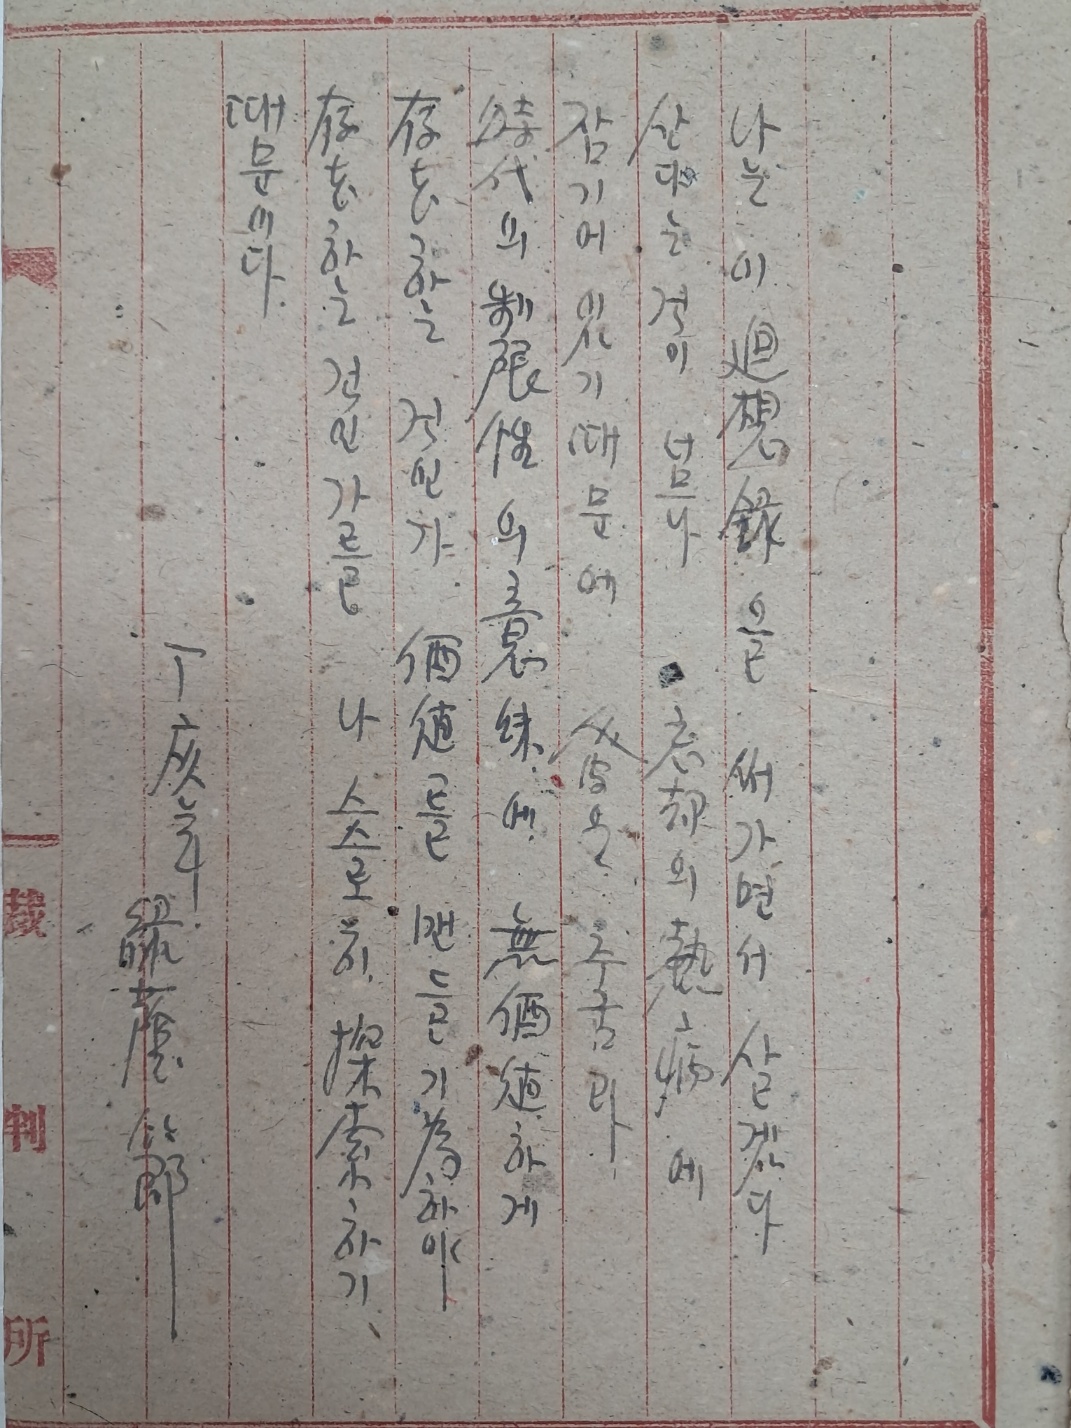 나는 이 廻想錄을 써가면서 살겠다
산다는 것이 넘무나 忘却의 熱病에
잠기어 있기 때문에
時代의 制限性의 意 에 無價値하게
存在하는 것인가 價値를 맨들기 爲하야
存在하는 것인가를 나 스스로히 探索하기
때문이다.
丁亥年
綠蔭 郎
裁判所